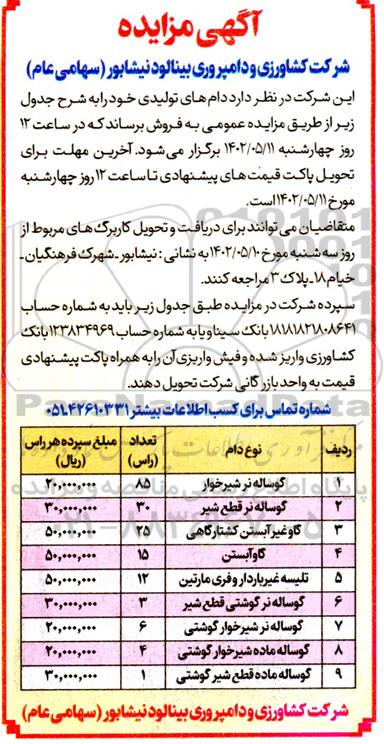 آگهی مزایده
شرکت کشاورزی و دامپروری بینالود نیشابور (سهامی عام)
این شرکت در نظر دارد دام های تولیدی خود را به شرح جدول
زیر از طریق مزایده عمومی به فروش برساند که در ساعت ۱۲
روز چهارشنبه ۱۴۰۲/۰۵/۱۱ برگزار می شود. آخرین مهلت برای
تحویل پاکت قیمت های پیشنهادی تا ساعت ۱۲ روز چهارشنبه
مورخ ۱۴۰۲/۰۵/۱۱ است.
متقاضیان می توانند برای دریافت و تحویل کاربرگ های مربوط از
روز سه شنبه مورخ ۱۴۰۲/۰۵/۱۰ به نشانی : نیشابور ـ شهرک فرهنگیان ـ
خیام ۱۸ ـ پلاک ۳ مراجعه کنند.
سپرده شرکت در مزایده طبق جدول زیر باید به شماره حساب
۱۸۱۸۱۸۲۱۸۰۸۶۴۱ بانک سینا و یا به شماره حساب ۱۲۳۸۳۴۹۶۹ بانک
کشاورزی واریز شده و فیش واریزی آن را به همراه پاکت پیشنهادی
قیمت به واحد بازرگانی شرکت تحویل دهند.
شماره تماس برای کسب اطلاعات بیشتر ۰۵۱.۴۲۶۱۰۳۳۱
ردیف نوع دام تعداد (راس) مبلغ سپرده هر راس (ریال)
۱ گوساله نر شیرخوار ۸۵ ۲۰,۰۰۰,۰۰۰
۲ گوساله نر قطع شیر ۳۰ ۳۰,۰۰۰,۰۰۰
۳ گاو غیر آبستن کشتارگاهی ۲۵ ۵۰,۰۰۰,۰۰۰
۴ گاو آبستن ۱۵ ۵۰,۰۰۰,۰۰۰
۵ تلیسه غیر باردار و فری مارتین ۱۲ ۵۰,۰۰۰,۰۰۰
۶ گوساله نر گوشتی قطع شیر ۳ ۳۰,۰۰۰,۰۰۰
۷ گوساله نر شیرخوار گوشتی ۶ ۲۰,۰۰۰,۰۰۰
۸ گوساله ماده شیرخوار گوشتی ۴ ۲۰,۰۰۰,۰۰۰
۹ گوساله ماده قطع شیر گوشتی ۱ ۳۰,۰۰۰,۰۰۰
شرکت کشاورزی و دامپروری بینالود نیشابور (سهامی عام)